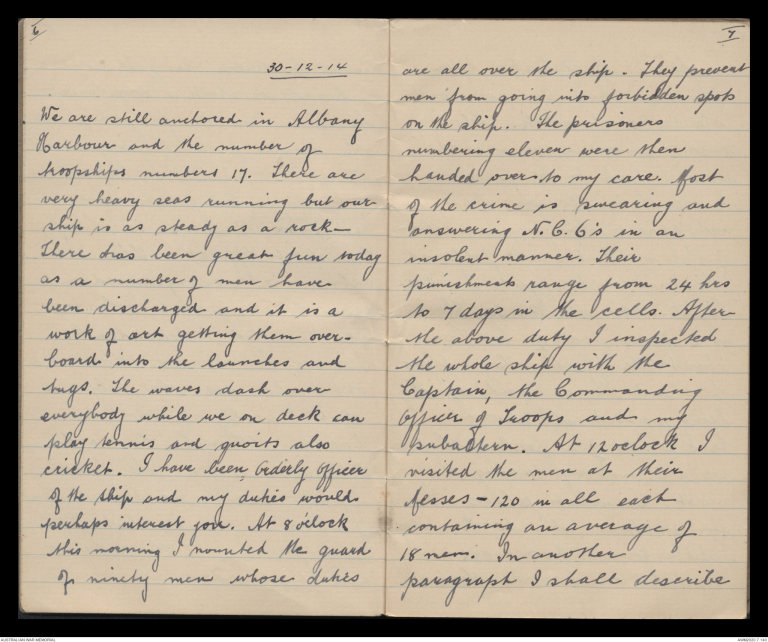 6
30-12-14
We are still anchored in Albany
Harbour and the number of
troopships numbers 17. There are
very heavy seas running but our
ship is as steady as a rock -
There has been great fun today
as a number of men have
been discharged and it is a
work of art getting them over-
board into the launches and
tugs. The waves dash over
everybody while we on deck can
play tennis and quoits also
cricket. I have been Orderly Officer
of the ship and my duties would
perhaps interest you. At 8 o'clock
this morning I mounted the guard
of ninety men whose duties
7
are all over the ship. They prevent
men from going into forbidden spots
on the ship. The prisoners
numbering eleven were then
handed over to my care. Most
of the crime is swearing and
answering N.C.O's in an
insolent manner. Their
punishments range from 24 hrs
to 7 days in the cells. After
the above duty I inspected
the whole ship with the
Captain, the Commanding
Officer of Troops and my
subaltern. At 12 oclock I
visited the men at their
Messes - 120 in all each
containing an average of
18 men. In another
paragraph I shall describe
AUSTRALIAN WAR MEMORIAL